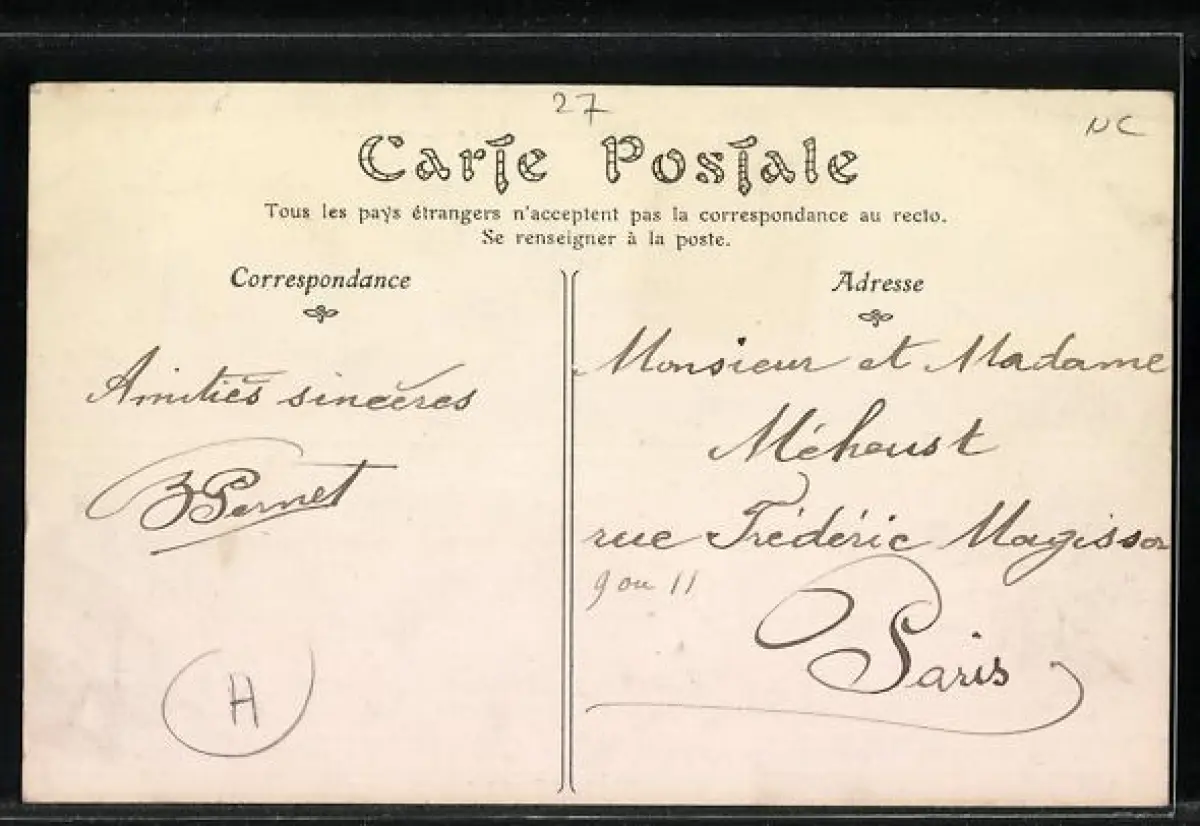 27
NC
Carte Postale
Tous les pays étrangers n'acceptent pas la correspondance au recto.
Se renseigner à la poste.
Correspondance
Amitiés sincères
B Pernet
H
Adresse
Monsieur et Madame
Méheust
rue Frédéric Magisson
9 ou 11
Paris